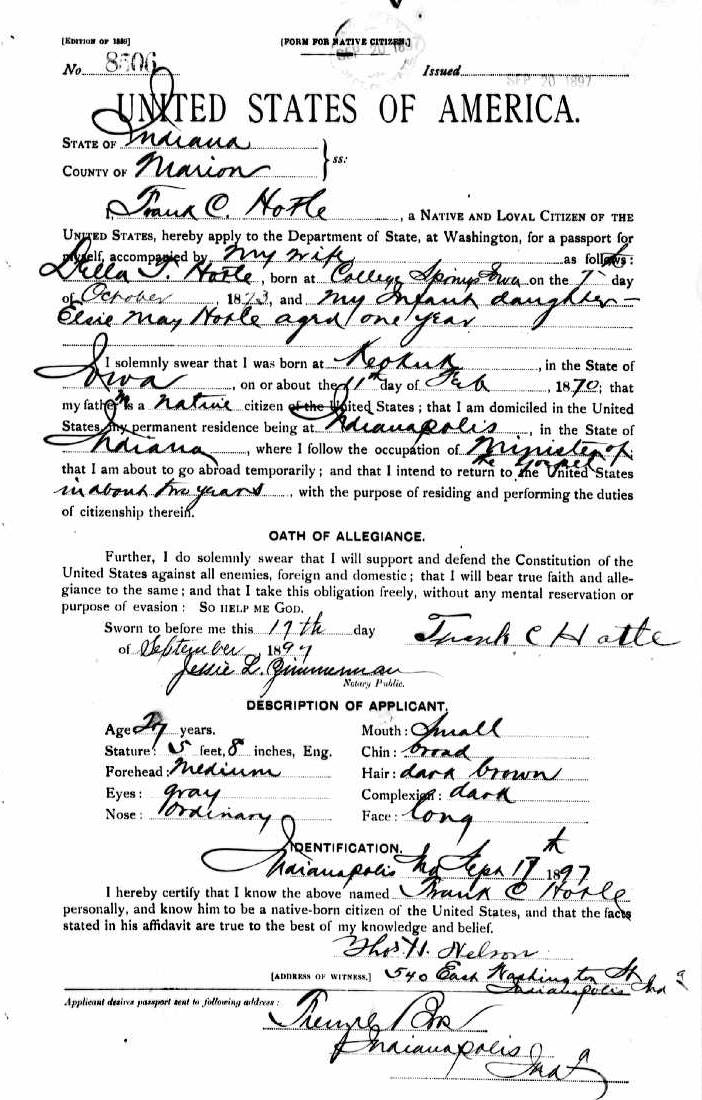 [EDITION OF 1896] [FORM FOR NATIVE CITIZEN.]
No. 8506 Issued SEP 20 1897
UNITED STATES OF AMERICA.
STATE OF Indiana
COUNTY OF Marion } ss:
I, Frank C. Hotle, a NATIVE AND LOYAL CITIZEN OF THE
UNITED STATES, hereby apply to the Department of State, at Washington, for a passport for
myself, accompanied by my wife as follows:
Della F. Hotle, born at College Springs Iowa on the 7 day
of October, 1873, and my Infant daughter –
Elsie May Hotle aged one year
I solemnly swear that I was born at Keokuk, in the State of
Iowa, on or about the 11th day of Feb, 1870; that
my father is a native citizen of the United States; that I am domiciled in the United
States, my permanent residence being at Indianapolis, in the State of
Indiana, where I follow the occupation of Minister of
the Gospel
that I am about to go abroad temporarily; and that I intend to return to the United States
in about two years, with the purpose of residing and performing the duties
of citizenship therein.
OATH OF ALLEGIANCE.
Further, I do solemnly swear that I will support and defend the Constitution of the
United States against all enemies, foreign and domestic; that I will bear true faith and alle-
giance to the same; and that I take this obligation freely, without any mental reservation or
purpose of evasion: SO HELP ME GOD.
Sworn to before me this 17th day Frank C Hotle
of September, 1897
Jessie L. Zimmerman
Notary Public.
DESCRIPTION OF APPLICANT.
Age: 27 years. Mouth: Small
Stature: 5 feet, 8 inches, Eng. Chin: broad
Forehead: Medium Hair: dark brown
Eyes: gray Complexion: dark
Nose: ordinary Face: long
IDENTIFICATION.
Indianapolis Ind Sept 17th 1897
I hereby certify that I know the above named Frank C Hotle
personally, and know him to be a native-born citizen of the United States, and that the facts
stated in his affidavit are true to the best of my knowledge and belief.
Thos. H. Nelson
[ADDRESS OF WITNESS.] 540 East Washington St
Indianapolis Ind
Applicant desires passport sent to following address:
Indianapolis
Ind